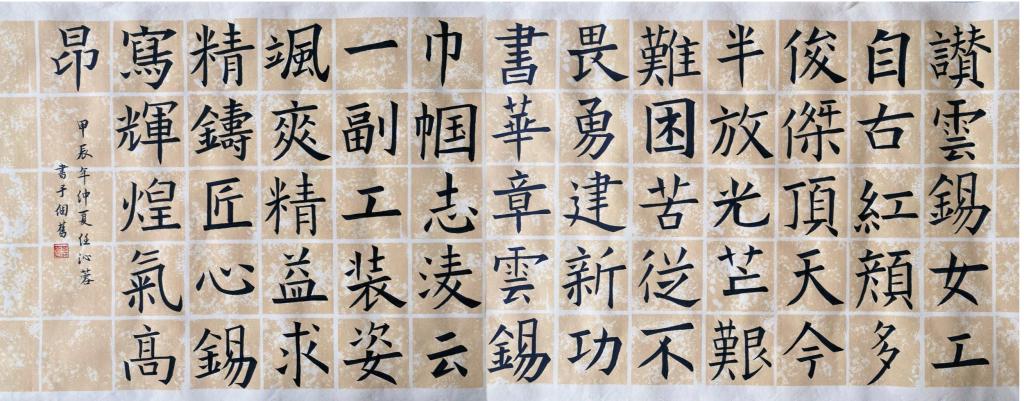 讃雲錫女工
自古紅顔多
俊傑頂天今
半放光芒艱
難困苦従不
畏勇建新功
書華章雲錫
巾帼志淩云
一副工装姿
颯爽精益求
精鑄匠心錫
寫輝煌氣高
昂
甲辰年仲夏任沁蓉
書于個舊